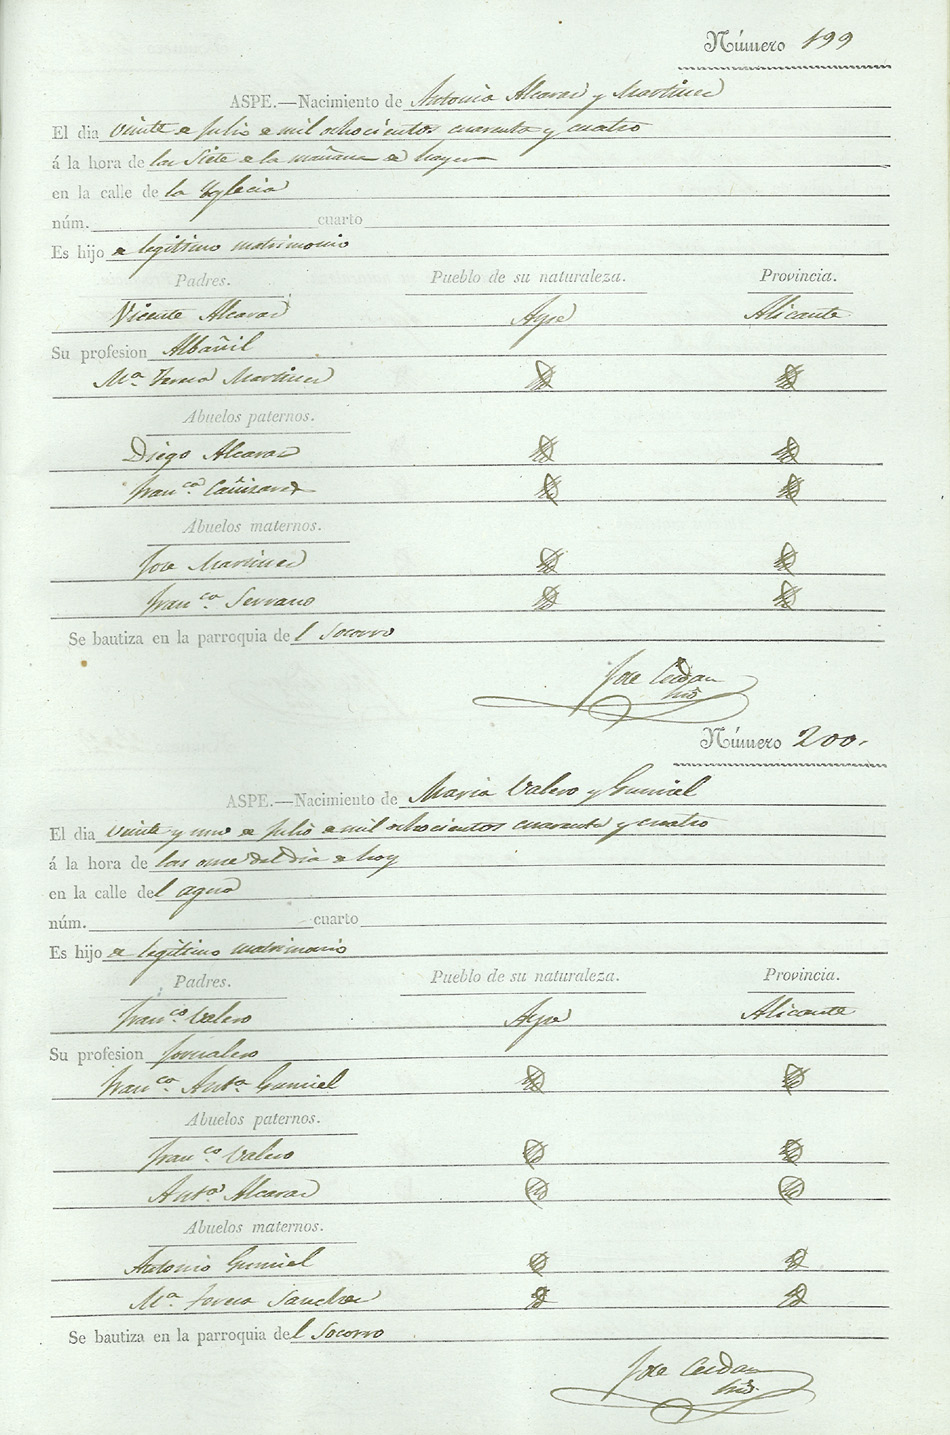 Número 199
ASPE.—Nacimiento de Antonia Alcaraz y Martinez
El dia veinte de Julio de mil ochocientos cuarenta y cuatro
á la hora de las siete de la mañana de hayer
en la calle de la Yglecia
núm. cuarto
Es hijo de legitimo matrimonio
Padres. Pueblo de su naturaleza. Provincia.
Vicente Alcaraz Aspe Alicante
Su profesion Albañil
Mª Teresa Martinez
Abuelos paternos.
Diego Alcaraz
Franca. Cañizares
Abuelos maternos.
Jose Martinez
Franca. Serrano
Se bautiza en la parroquia del Socorro
Jose Cerdan
Número 200.
ASPE.—Nacimiento de Maria Valero y Gumiel
El dia veinte y uno de Julio de mil ochocientos cuarenta y cuatro
á la hora de las once del dia de hoy
en la calle del agua
núm. cuarto
Es hijo de legitimo matrimonio
Padres. Pueblo de su naturaleza. Provincia.
Franco. Valero Aspe Alicante
Su profesion Jornalero
Franca. Anta. Gumiel
Abuelos paternos.
Franco. Valero
Anta. Alcaraz
Abuelos maternos.
Antonio Gumiel
Mª. Teresa Sanchez
Se bautiza en la parroquia del Socorro
Jose Cerdan